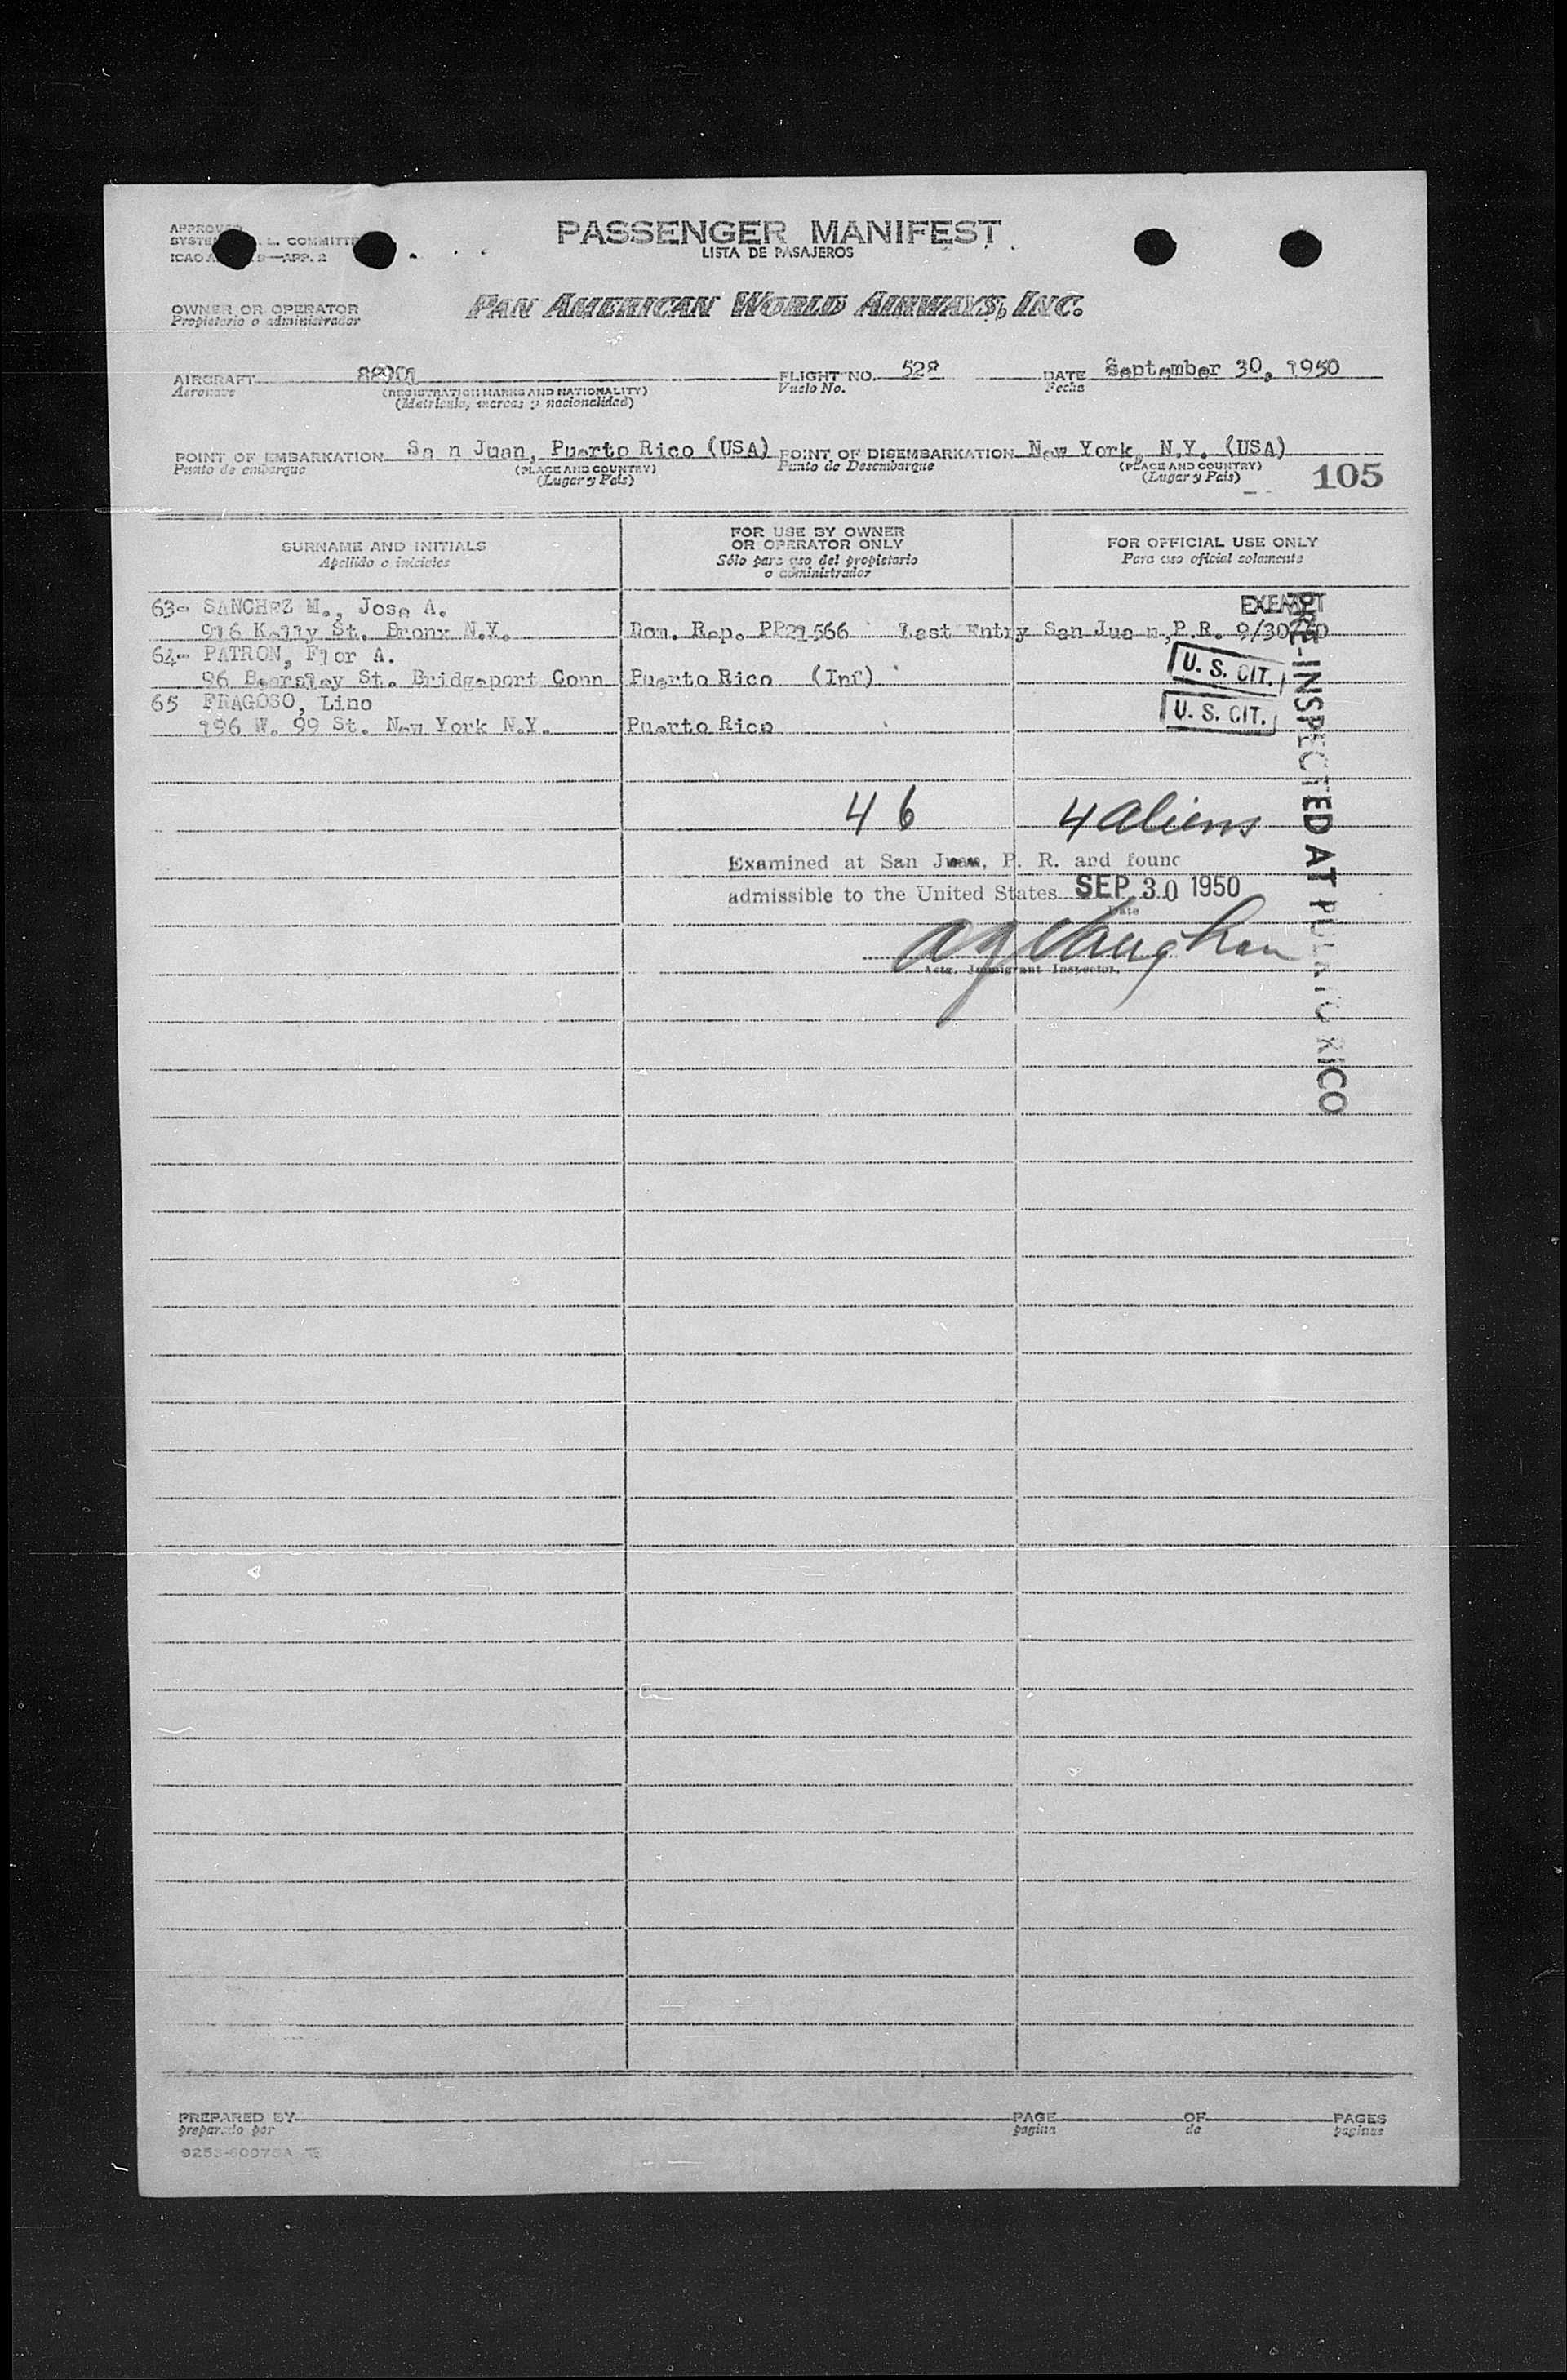 APPROVED
COMMITTEE
ICAO APP. 2
PASSENGER MANIFEST
LISTA DE PASAJEROS
OWNER OR OPERATOR
Propietario o administrador
PAN AMERICAN WORLD AIRWAYS, INC.
AIRCRAFT
Aeronave
(REGISTRATION MARKS AND NATIONALITY)
(Matricula, marcas y nacionalidad)
FLIGHT NO. 528
Vuelo No.
DATE September 30, 1950
Fecha
POINT OF EMBARKATION San Juan, Puerto Rico (USA) POINT OF DISEMBARKATION New York, N.Y. (USA)
Punto de embarque (PLACE AND COUNTRY) Punto de Desembarque (PLACE AND COUNTRY)
(Lugar y País) (Lugar y País)
105
SURNAME AND INITIALS
Apellido e iniciales
FOR USE BY OWNER
OR OPERATOR ONLY
Sólo para uso del propietario
o administrador
FOR OFFICIAL USE ONLY
Para uso oficial solamente
63- SANCHEZ M., Jose A. EXEMPT
916 Kelly St. Bronx N.Y. Dom. Rep. PP21566 Last Entry San Juan, P.R. 9/30/50
64- PATRON, Flor A.
96 St. Bridgeport Conn Puerto Rico (Inf) U. S. CIT.
65 FRAGOSO, Lino
196 W. 99 St. New York N.Y. Puerto Rico U. S. CIT.
PRE-INSPECTED AT PUERTO RICO
46 4 aliens
Examined at San Juan, P. R. and found
admissible to the United States SEP 30 1950
Date
A G Vaughan
Actg. Immigrant Inspector.
PREPARED BY PAGE OF PAGES
preparado por pagina de paginas